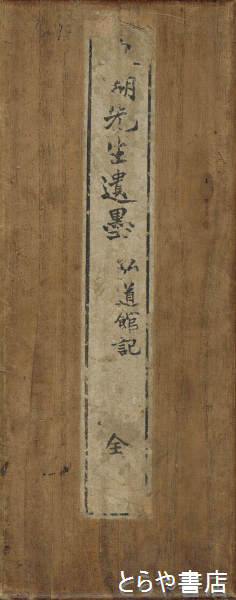 胡先生遺墨 弘道館記 全
とらや書店